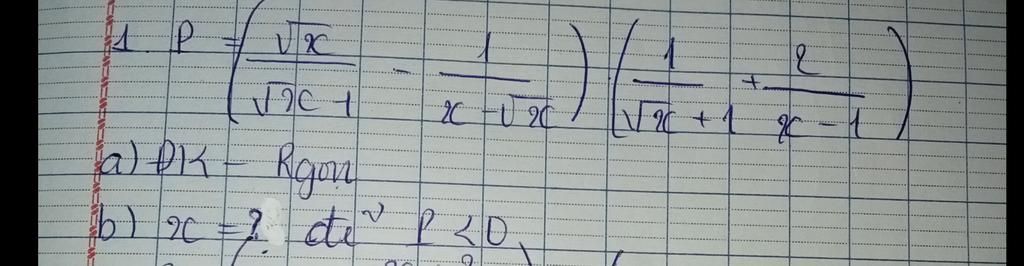 1. P = (√x / √x - 1 - 1 / x - √x) (1 / √x + 1 + 2 / x - 1)
a) ĐK - Rgọn
b) x = ? để P < 0